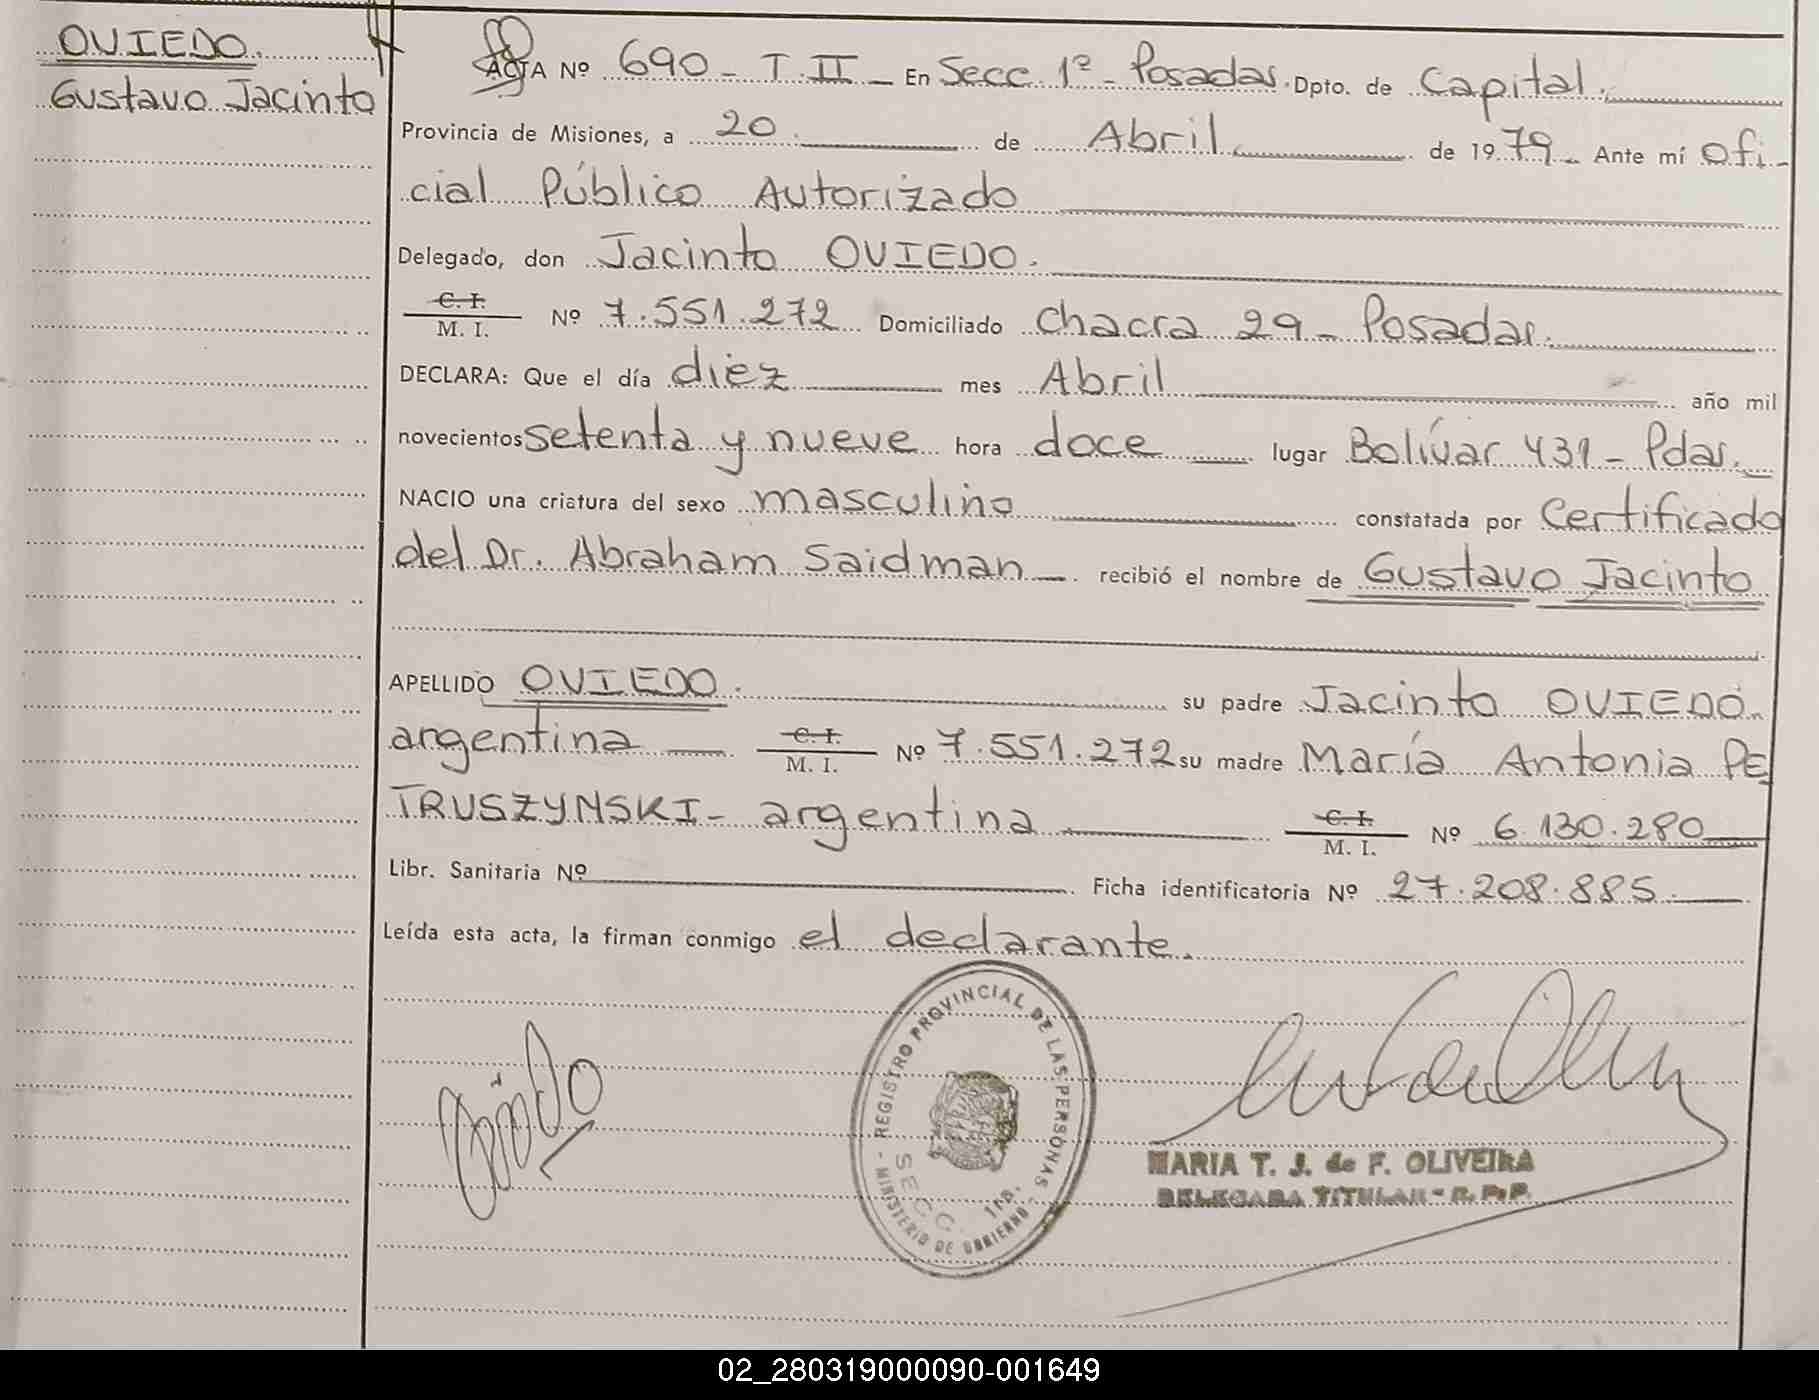 OVIEDO.
Gustavo Jacinto
ACTA Nº 690 - T II - En Secc 1º - Posadas. Dpto. de Capital.
Provincia de Misiones, a 20. de Abril de 1979 - Ante mí Ofi-
cial Público Autorizado
Delegado, don Jacinto OVIEDO.
C. I.
M. I. Nº 7.551.272 Domiciliado Chacra 29 - Posadas.
DECLARA: Que el día diez mes Abril año mil
novecientos setenta y nueve hora doce lugar Bolívar 431 - Pdas.
NACIO una criatura del sexo masculino constatada por Certificado
del Dr. Abraham Saidman - recibió el nombre de Gustavo Jacinto
APELLIDO OVIEDO. su padre Jacinto OVIEDO.
argentina C. I. M. I. Nº 7.551.272 su madre María Antonia PE
TRUSZYNSKI - argentina C. I. M. I. Nº 6.130.280
Libr. Sanitaria Nº Ficha identificatoria Nº 27.208.885.
Leída esta acta, la firman conmigo el declarante.
REGISTRO PROVINCIAL DE LAS PERSONAS - MINISTERIO DE GOBIERNO -
SECC. 1ra.
MARIA T. J. de F. OLIVEIRA
DELEGADA TITULAR - R. P. P.
02_280319000090-001649